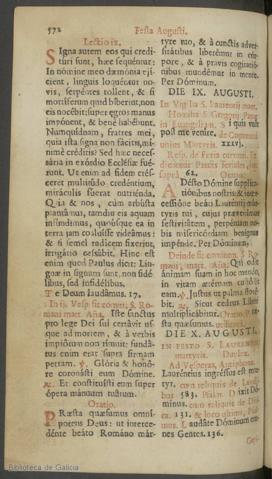 572 Festa Augusti.
Lectio ix.
Signa autem eos qui credi-
turi sunt, hæc sequentur:
In nómine meo dæmónia e-
jícient, linguis loquéntur no-
vis, serpéntes tollent, & si
mortíferum quid bíberint, non
eis nocébit: super ægros manus
impónent, & bene habébunt.
Numquídnam, fratres mei,
quia ista signa non fácitis, mí-
nimè créditis? Sed hæc neces-
sária in exórdio Ecclésiæ fué-
runt. Ut enim ad fidem crés-
ceret multitúdo credéntium,
miráculis fúerat nutriénda.
Quia & nos, cùm arbústa
plantámus, tamdiu eis aquam
infúndimus, quoúsque ea in
terra jam coaluísse videámus:
& si semel radícem fíxerint,
irrigátio cessábit. Hinc est
enim quod Paulus dicit: Lin-
guæ in signum sunt, non fidé-
libus, sed infidélibus.
Te Deum laudámus. 17.
In ij. Vesp. fit comm. S. Ro-
mani mart. Aña. Iste sanctus
pro lege Dei sui certávit us-
que ad mortem, & à verbis
impiórum non tímuit: fundá-
tus enim erat supra firmam
petram. ℣. Glória & honó-
re coronásti eum Dómine.
℟. Et constituísti eum super
ópera mánuum tuárum.
Oratio.
Præsta quæsumus omní-
potens Deus: ut interce-
dénte beáto Románo már-
tyre tuo, & à cunctis adver-
sitátibus liberémur in cór-
pore, & à pravis cogitatió-
nibus mundémur in mente.
Per Dóminum.
DIE IX. AUGUSTI.
In Vigilia S. Laurentij mart.
Homilia S. Gregorij Papæ
in Evangelium, Si quis vult
post me veníre. de Communi
unius Martyris. xxxvj.
62. Oratio.
Adésto Dómine supplica-
tiónibus nostris: & inter-
cessióne beáti Lauréntij már-
tyris tui, cujus prævenímus
festivitátem, perpétuam no-
bis misericórdiam benígnus
impénde. Per Dóminum.
Deinde fit comm. S. Ro-
mani, mart. Aña. Qui odit
ánimam suam in hoc mundo,
in vitam ætérnam custódit
eam. ℣. Justus ut palma floré-
bit. ℟. Sicut cedrus Líbani
multiplicábitur. Oratio. Præ-
sta quæsumus
DIE X. AUGUSTI.
IN FESTO S. LAURENTII
martyris. Duplex.
Ad Vesperas, Antiphona.
Lauréntius ingréssus est mar-
tyr, cum reliquis de Laudi-
bus 583. Psalm. Dixit Dó-
minus, cum reliquis de Domini-
ca. 131. & loco ultimi, Psal-
mus. Laudáte Dóminum om-
nes Gentes. 136.
Biblioteca de Galicia